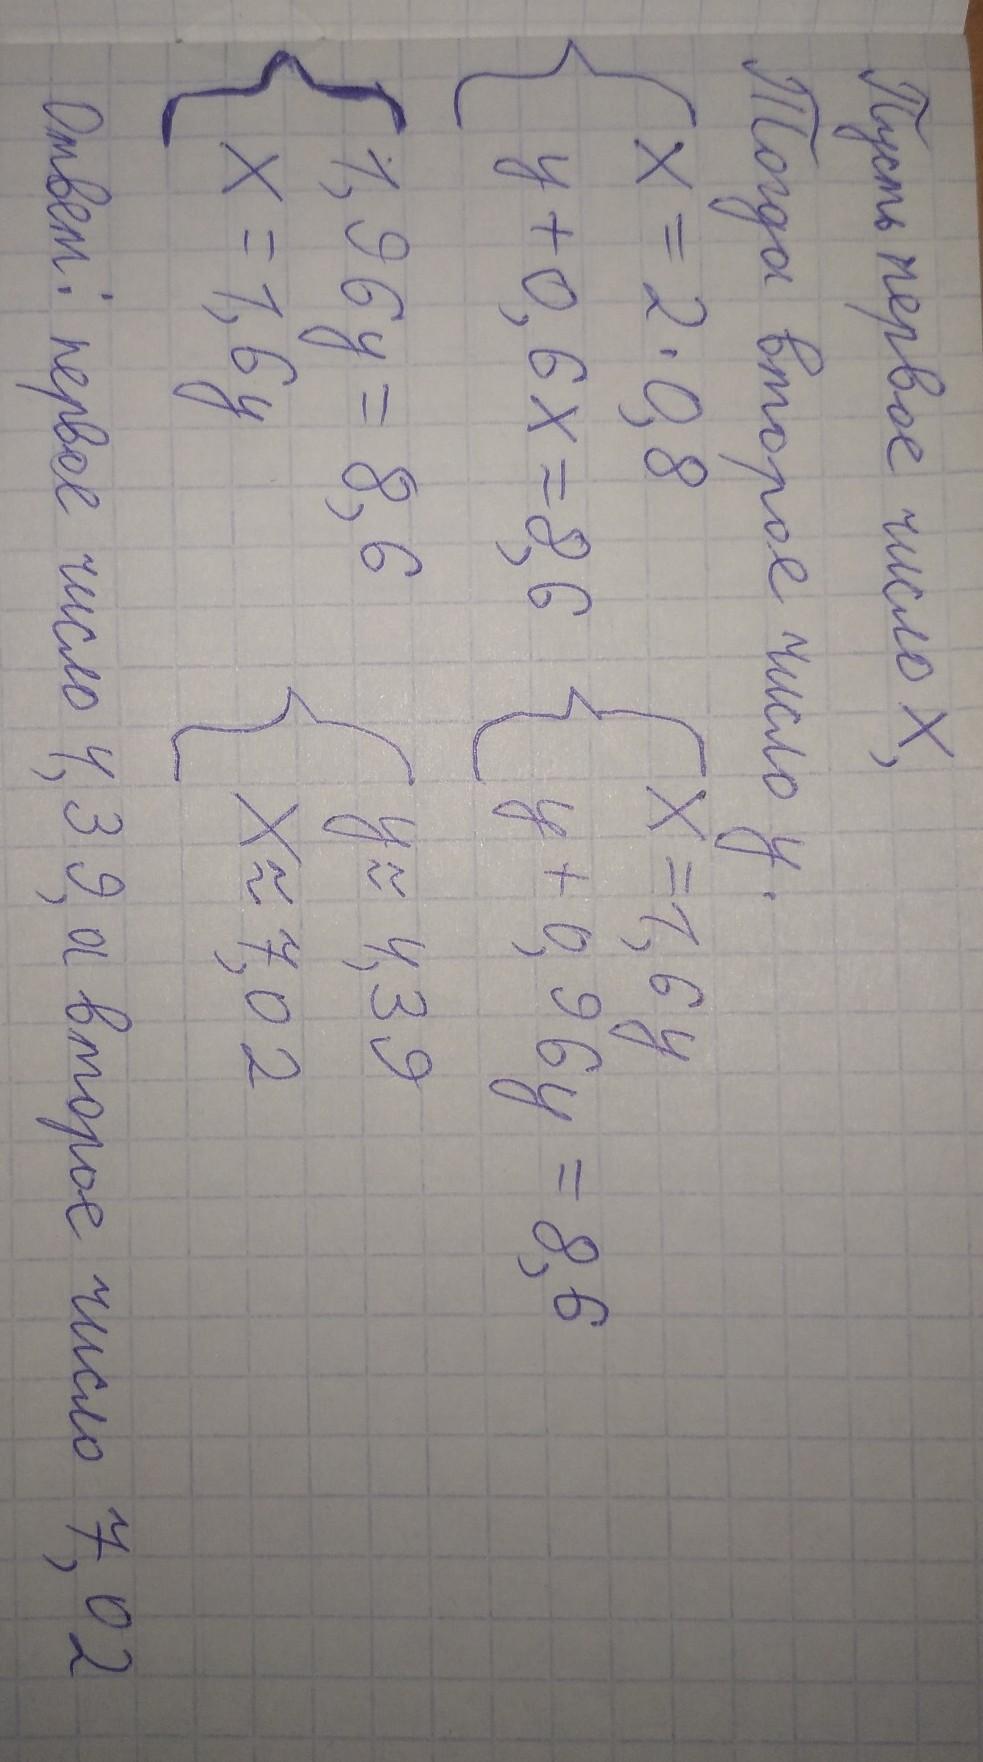 Пусть первое число x,
Тогда второе число y.
x = 2 · 0,8   x = 1,6y
y + 0,6x = 8,6   y + 0,96y = 8,6
1,96y = 8,6   y ≈ 4,39
x = 1,6y   x ≈ 7,02
Ответ: первое число 4,39, а второе число 7,02